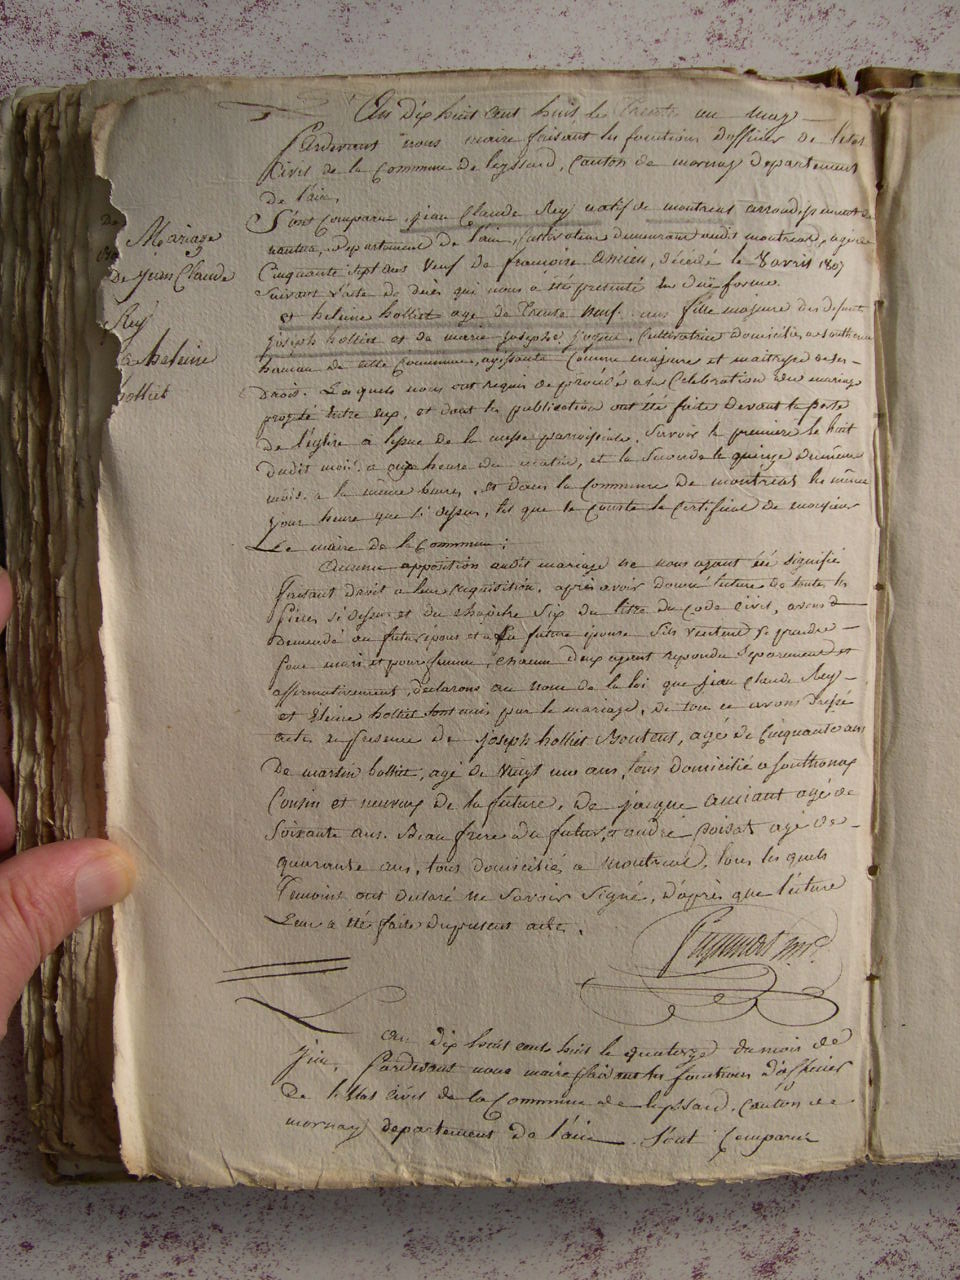 Mariage
De Jean Claude
Rey
heleine
hollier
L'an dix huit cent huit le trente un may
Pardevant nous maire faisant les fonctions d'officier de l'etat
Civil de la Commune de leyssard, Canton de mornay département
de l'ain,
Sont Comparu jean Claude Rey natif de montreal arrondissement de
nantua, Departement de l'ain, Cultivateur demeurant audit montreal, agé de
Cinquante sept ans veuf de françoise décédé le 8 avril 1807
Suivant l'acte de décès qui nous a été presenté en due forme.
et heleine holliet age de trente neuf ans fille majeure des defunt
joseph holliet et de marie josephe Cultivatrice domiciliée a Southonax
hameau de cette Commune, agissante Comme majeure et maitresse de ses
Droit. Lesquels nous ont requis de procédé a la Celebration du mariage
projeté entre eux, et dont les publication ont été faite devant la porte
de l'église a l'issue de la messe parroissiale, Savoir la premiere le huit
dudit mois a onze heure du matin, et la seconde le quinze du meme
mois a la même heure, et dans la Commune de montreal les même
jour heure que si dessus, tel que le Conste le Certificat de monsieur
Le maire de la Commune;
Aucune opposition audit mariage ne nous ayant été signifié
faisant droit a leur requisition, après avoir donné lecture de toute les
pièces si dessus et du chapitre six du titre du Code Civil, avons
demendé au futur époux et a la future épouse s'ils veulent se prendre
pour mari et pour femme, chacun d'eux ayant repondu separement et
affirmativement, declarons au nom de la loi que jean Claude Rey
et heleine holliet sont unis par le mariage, de tou ce avons dressé
acte en presence de joseph holliet Bouteus, agé de Cinquante ans
De martin holliet, agé de vingt un ans, tous domicilié a Southonax
Cousin et neveux de la future, de jacque amiant agé de
soixante ans Beau frere du futur, d'andré Poisat agé de
quarante ans, tous domiciliés a montreal, tous les quels
Temoins ont declaré ne Savoir Signé, d'après que lecture
Leur a été faite du present acte.
L'an dix huit cent huit le quatorze du mois de
Juin, Pardevant nous maire faisant les fonctions d'officier
De l'etat civil de la Commune de leyssard, Canton de
mornay departement de l'ain Sont Comparu